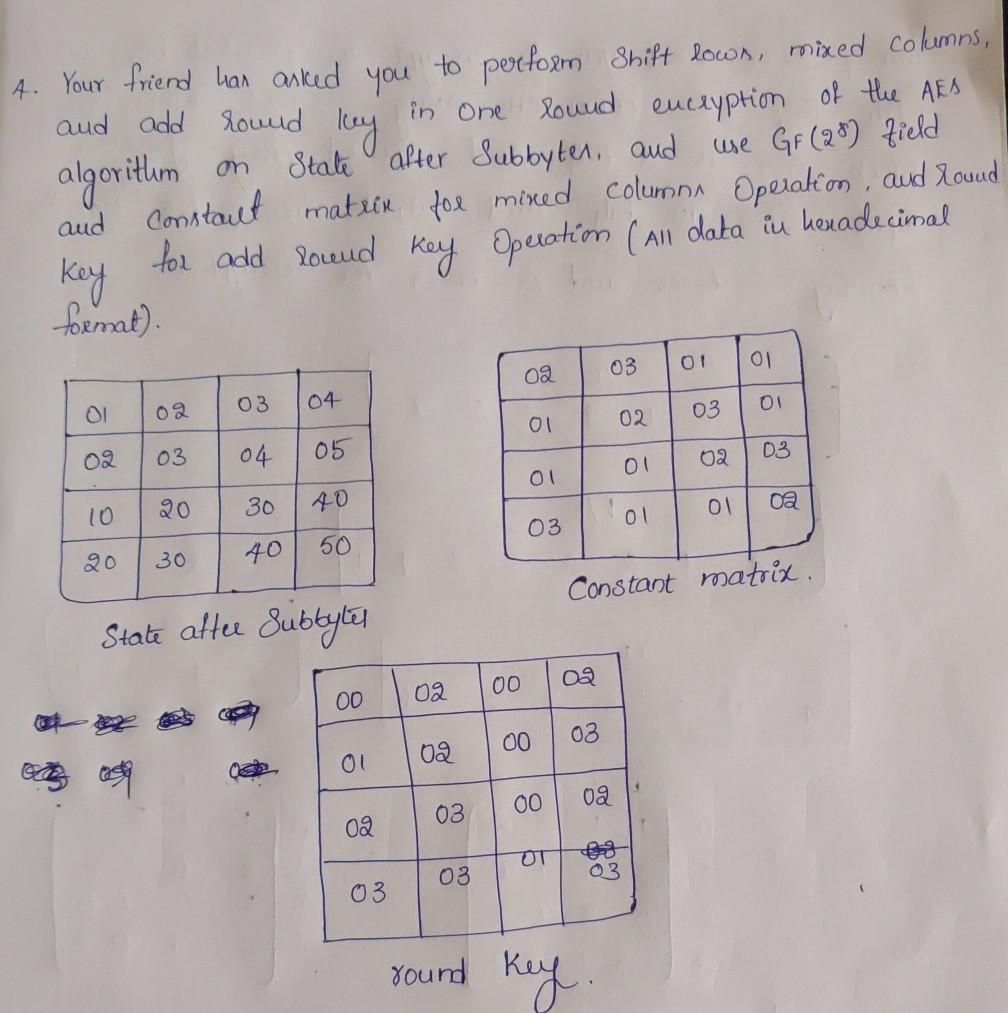 4. Your friend has asked you to perform Shift Rows, mixed columns,
and add round key in one round encryption of the AES
algorithm on State after Subbytes, and use GF(2⁸) field
and Constant matrix for mixed columns Operation, and Round
key for add round key Operation (All data in hexadecimal
format).
01 02 03 04
02 03 04 05
10 20 30 40
20 30 40 50
State after Subbytes
02 03 01 01
01 02 03 01
01 01 02 03
03 01 01 02
Constant matrix.
00 02 00 02
01 02 00 03
02 03 00 02
03 03 01 03
round key.